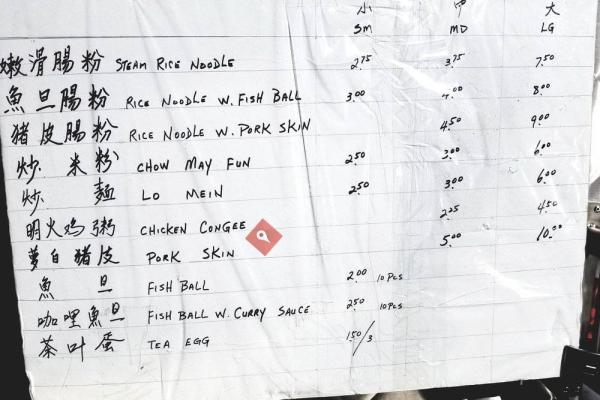 小 中 大
SM MD LG
嫩滑腸粉 STEAM RICE NOODLE 2.75 3.75 7.50
魚旦腸粉 RICE NOODLE W. FISH BALL 3.00 4.00 8.00
猪皮腸粉 RICE NOODLE W. PORK SKIN 4.50 9.00
炒米粉 CHOW MAY FUN 2.50 3.00 6.00
炒麵 LO MEIN 2.50 3.00 6.00
明火鸡粥 CHICKEN CONGEE 2.25 4.50
萝白猪皮 PORK SKIN 5.00 10.00
魚旦 FISH BALL 2.00 10 PCS
咖哩魚旦 FISH BALL W. CURRY SAUCE 2.50 10 PCS
茶叶蛋 TEA EGG 1.50/3